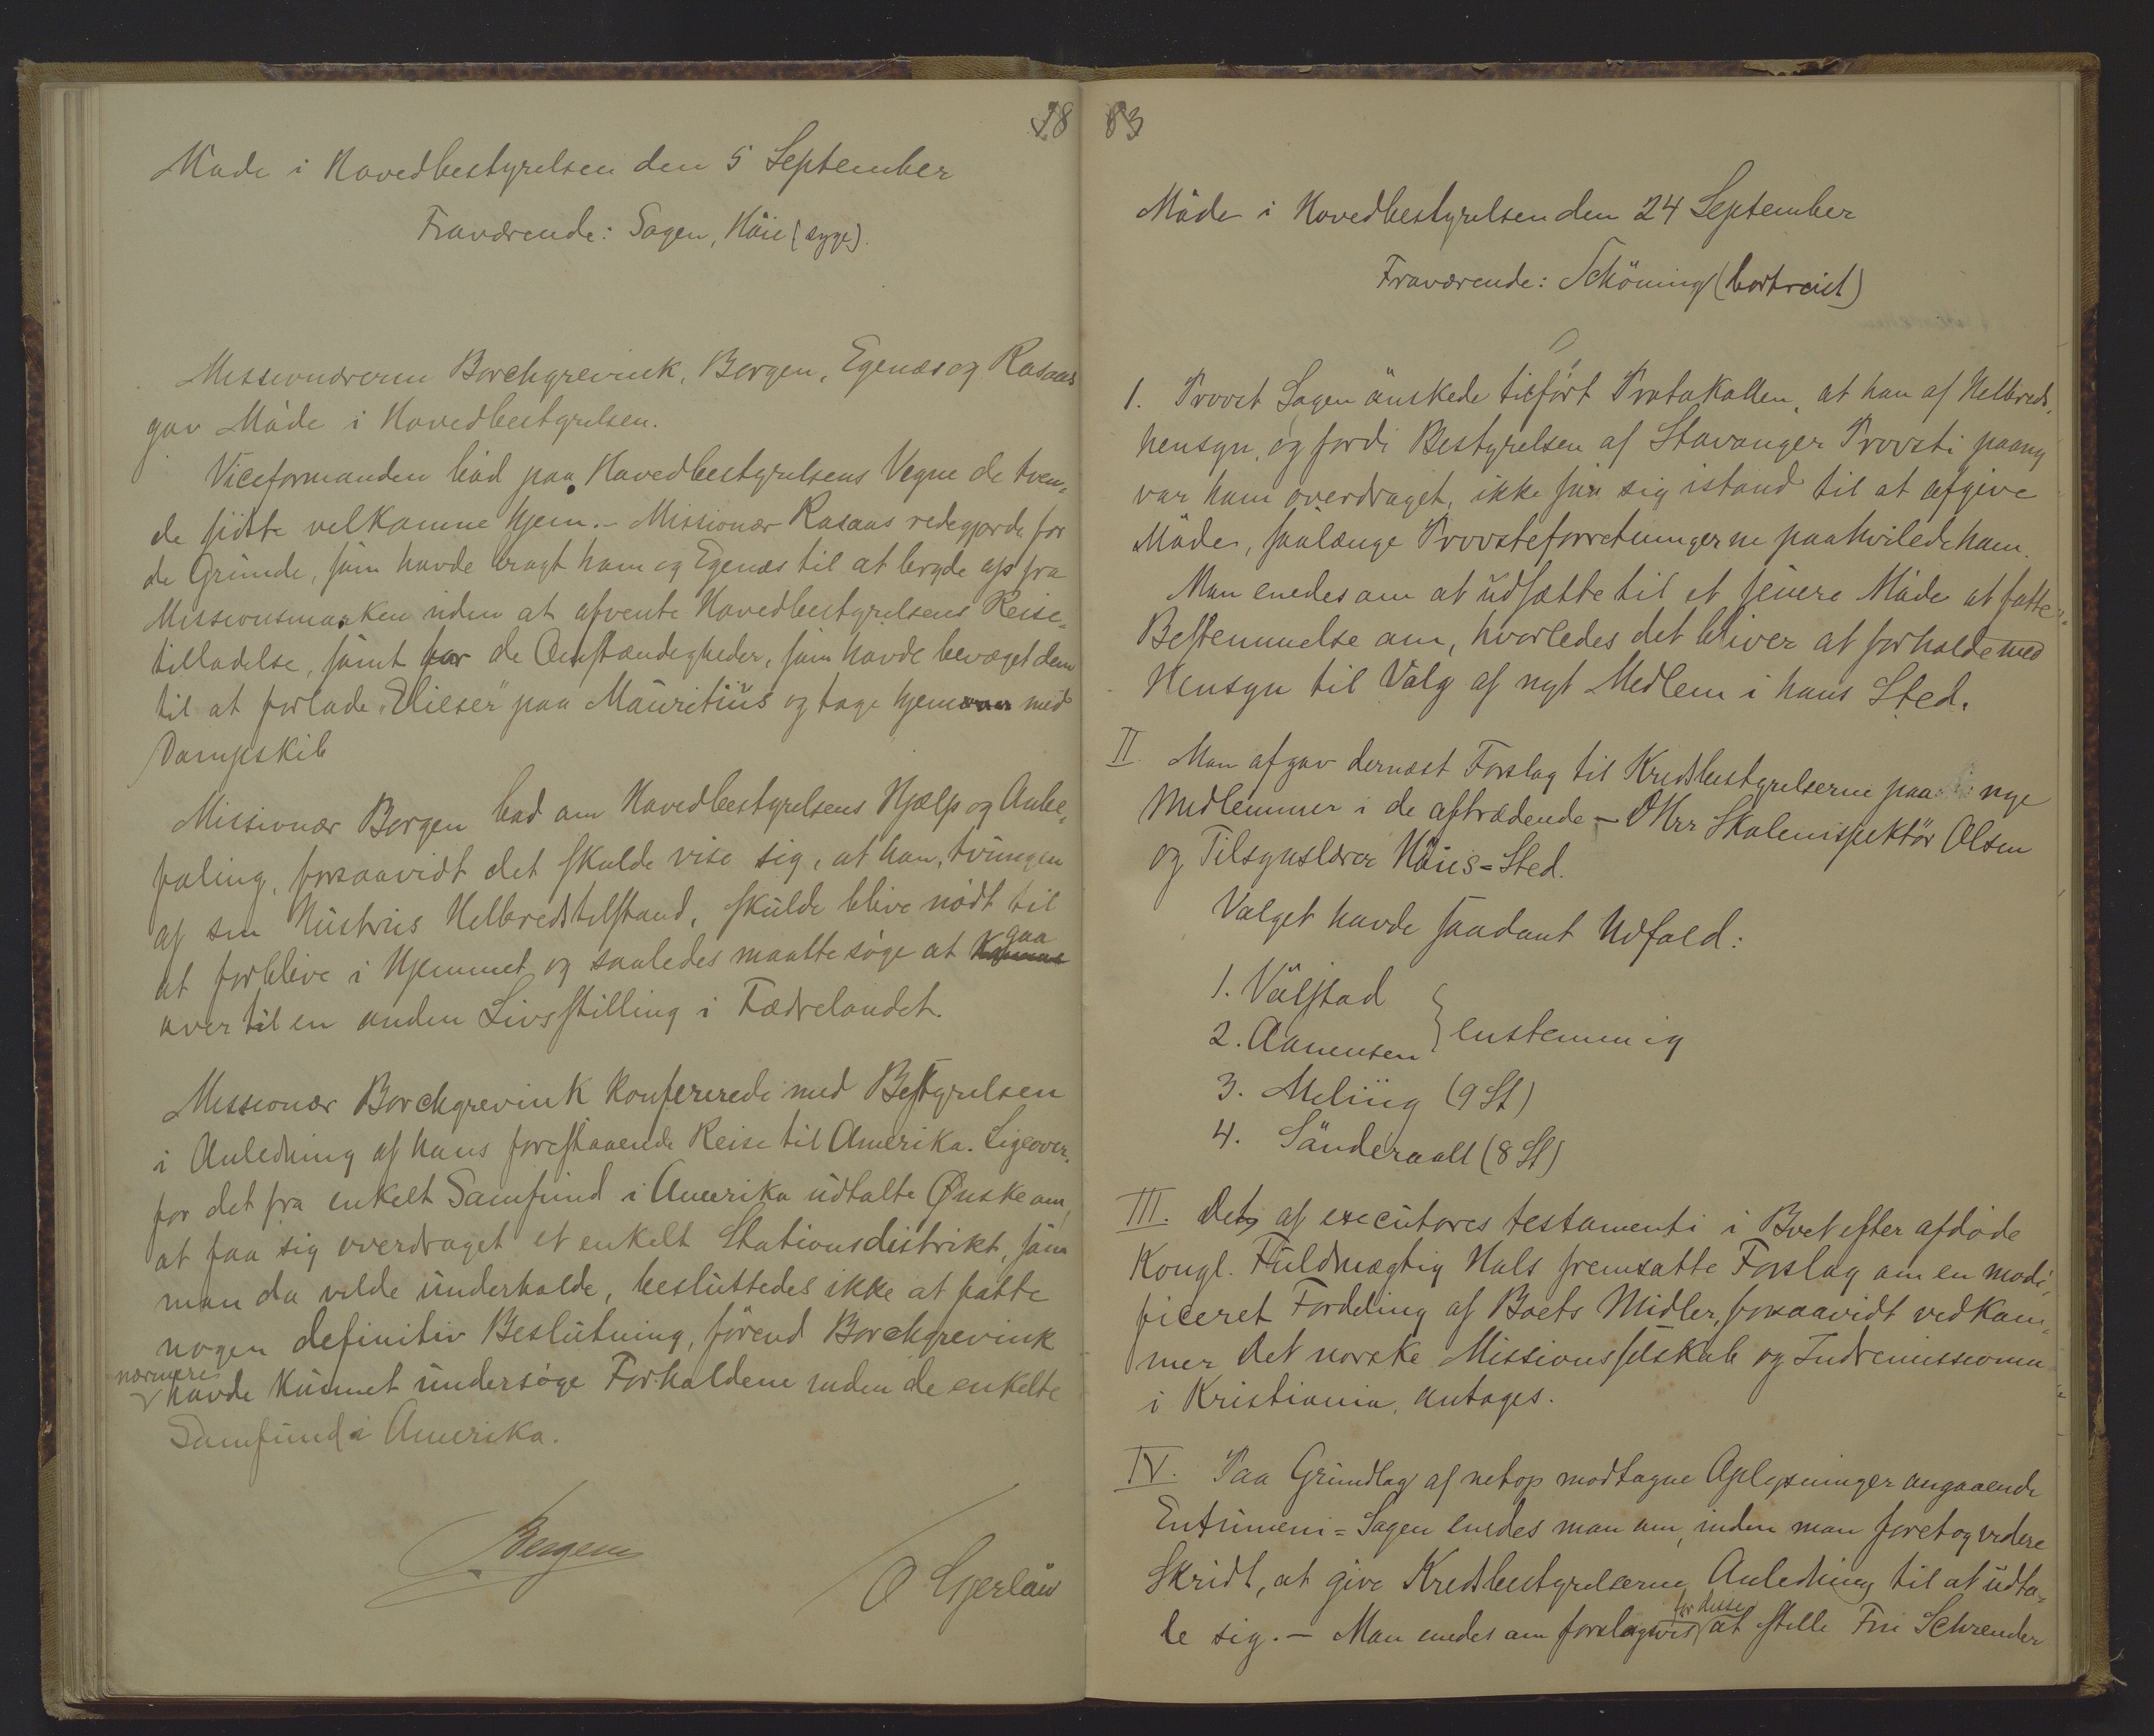 78
Møde i Hovedbestyrelsen den 5 September
Fraværende: Sagen, Høie (syge).
Missionærerne Borchgrevink, Borgen, Egenæs og Rosaas
gav Møde i Hovedbestyrelsen.
Viceformanden bød paa Hovedbestyrelsens Vegne de tven-
de sidste velkomne hjem. - Missionær Rosaas redegjorde for
de Grunde, som havde bragt ham og Egenæs til at bryde op fra
Missionsmarken uden at afvente Hovedbestyrelsens Reise-
tilladelse, samt for de Omstændigheder, som havde bevæget dem
til at forlade "Elieser" paa Mauritius og tage hjem med
Dampskib
Missionær Borgen bad om Hovedbestyrelsens Hjælp og Anbe-
faling, forsaavidt det skulde vise sig, at han, tvungen
af sin Hustrus Helbredstilstand, skulde blive nødt til
at forblive i Hjemmet og saaledes maatte søge at gaa
over til en anden Livsstilling i Fædrelandet.
Missionær Borchgrevink konfererede med Bestyrelsen
i Anledning af hans forestaaende Reise til Amerika. Ligeover-
for det fra enkelt Samfund i Amerika udtalte Ønske om,
at faa sig overdraget et enkelt Stationsdistrikt, som
man da vilde underholde, besluttedes ikke at fatte
nogen definitiv Beslutning, førend Borchgrevink
nærmere havde kunnet undersøge Forholdene inden de enkelte
Samfund i Amerika.
O Gjerløw
83
Møde i Hovedbestyrelsen den 24 September
Fraværende: Schøning (bortreist)
1. Provst Sagen ønskede tilført Protokollen, at han af Helbreds-
hensyn, og fordi Bestyrelsen af Stavanger Provsti paany
var ham overdraget, ikke saa sig istand til at afgive
Møde, saalænge Provsteforretningerne paahvilede ham.
Man enedes om at udsætte til et senere Møde at fatte
Bestemmelse om, hvorledes det bliver at forholde med
Hensyn til Valg af nyt Medlem i hans Sted.
II. Man afgav dernæst Forslag til Kredsbestyrelserne paa nye
Medlemmer i de aftrædende - DHrr Skoleinspektør Olsen
og Tilsynslærer Høies - Sted.
Valget havde saadant Udfald:
1. Vølstad
2. Aanensen } enstemmig
3. Meling (9 St)
4. Sønderaal (8 St)
III. Det af executores testamenti i Boet efter afdøde
Kongl. Fuldmægtig Hals fremsatte Forslag om en modi-
ficeret Fordeling af Boets Midler, forsaavidt vedkom-
mer det norske Missionsselskab og Indremissionen
i Kristiania, antages.
IV. Paa Grundlag af netop modtagne Oplysninger angaaende
Entumeni-Sagen enedes man om, inden man foretog videre
Skridt, at give Kredsbestyrelserne Anledning til at udta-
le sig. - Man enedes om forslagsvis for disse at stille Fru Schreuder